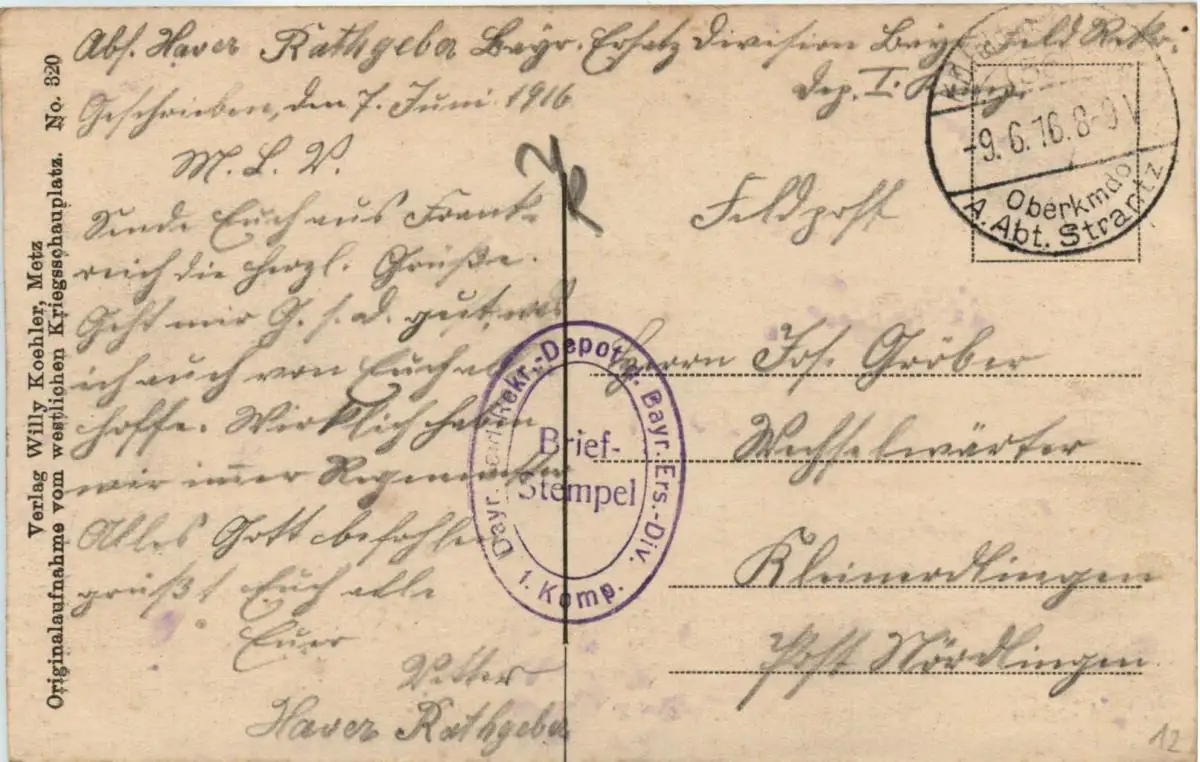 Abs. Xaver Rathgeber Bayr. Ersatz Division Bayr. Feld Rekr.
Dep. I. Komp.
Geschrieben, den 7. Juni 1916
M. L. V.
Sende Euch aus Frank-
reich die herzl. Grüße.
Geht mir G. s. d. gut, was
ich auch von Euch
hoffe. Wirklich haben
wir immer Regenwetter
Alles Gott befohlen
grüßt Euch alle
Euer
Vetter
Xaver Rathgeber
Feldpost
Herrn Jos. Gröber
Wechselwärter
Kleinerdlingen
Post Nördlingen
-9.6.16.8-9V
Oberkmdo
A. Abt. Strantz
Bayr. Feld-Rekr.-Depot d. Bayr. Ers.-Div.
Brief-
Stempel
1. Komp.
Verlag Willy Koehler, Metz
Originalaufnahme vom westlichen Kriegsschauplatz. No. 320
12